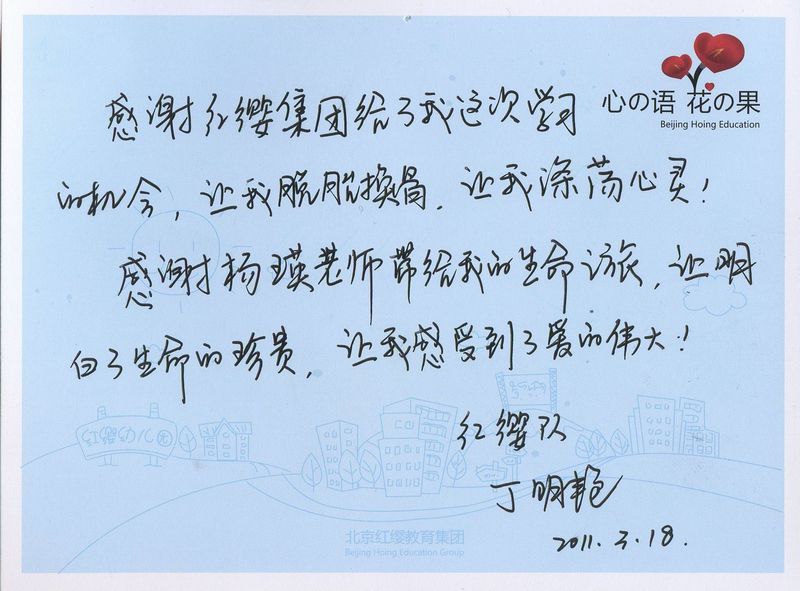 心の语 花の果
Beijing Hoing Education
感谢红缨集团给了我这次学习
的机会，让我脱胎换骨，让我涤荡心灵！
感谢杨瑛老师带给我的生命之旅，让明
白了生命的珍贵，让我感受到了爱的伟大！
红缨队
丁明艳
2011.3.18.
红缨幼儿园
北京红缨教育集团
Beijing Hoing Education Group